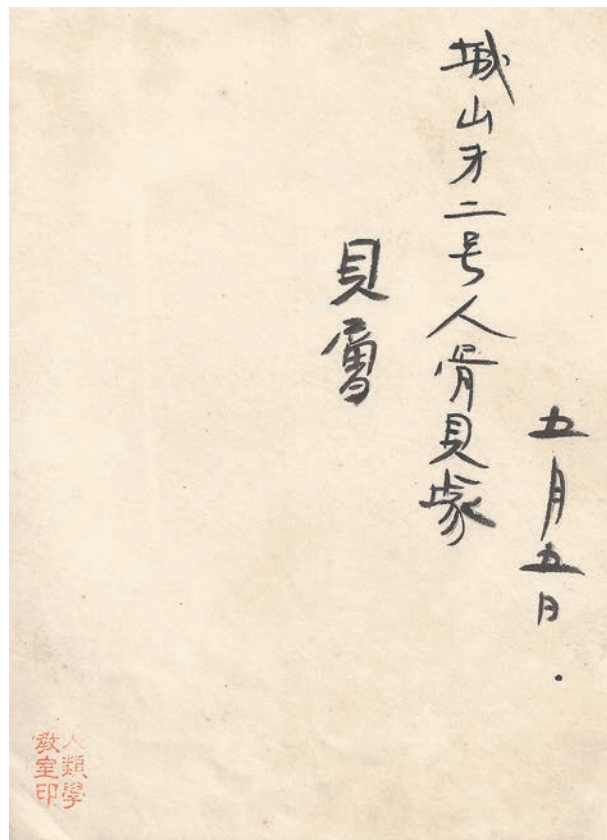 五月五日.
城山才二号人骨貝塚
貝層
人類學
教室印